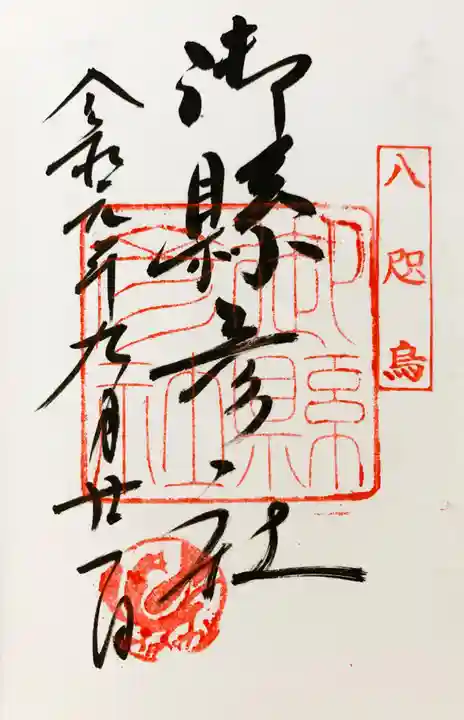 八咫烏
御縣彦社
令和元年九月廿一日
御縣彦社